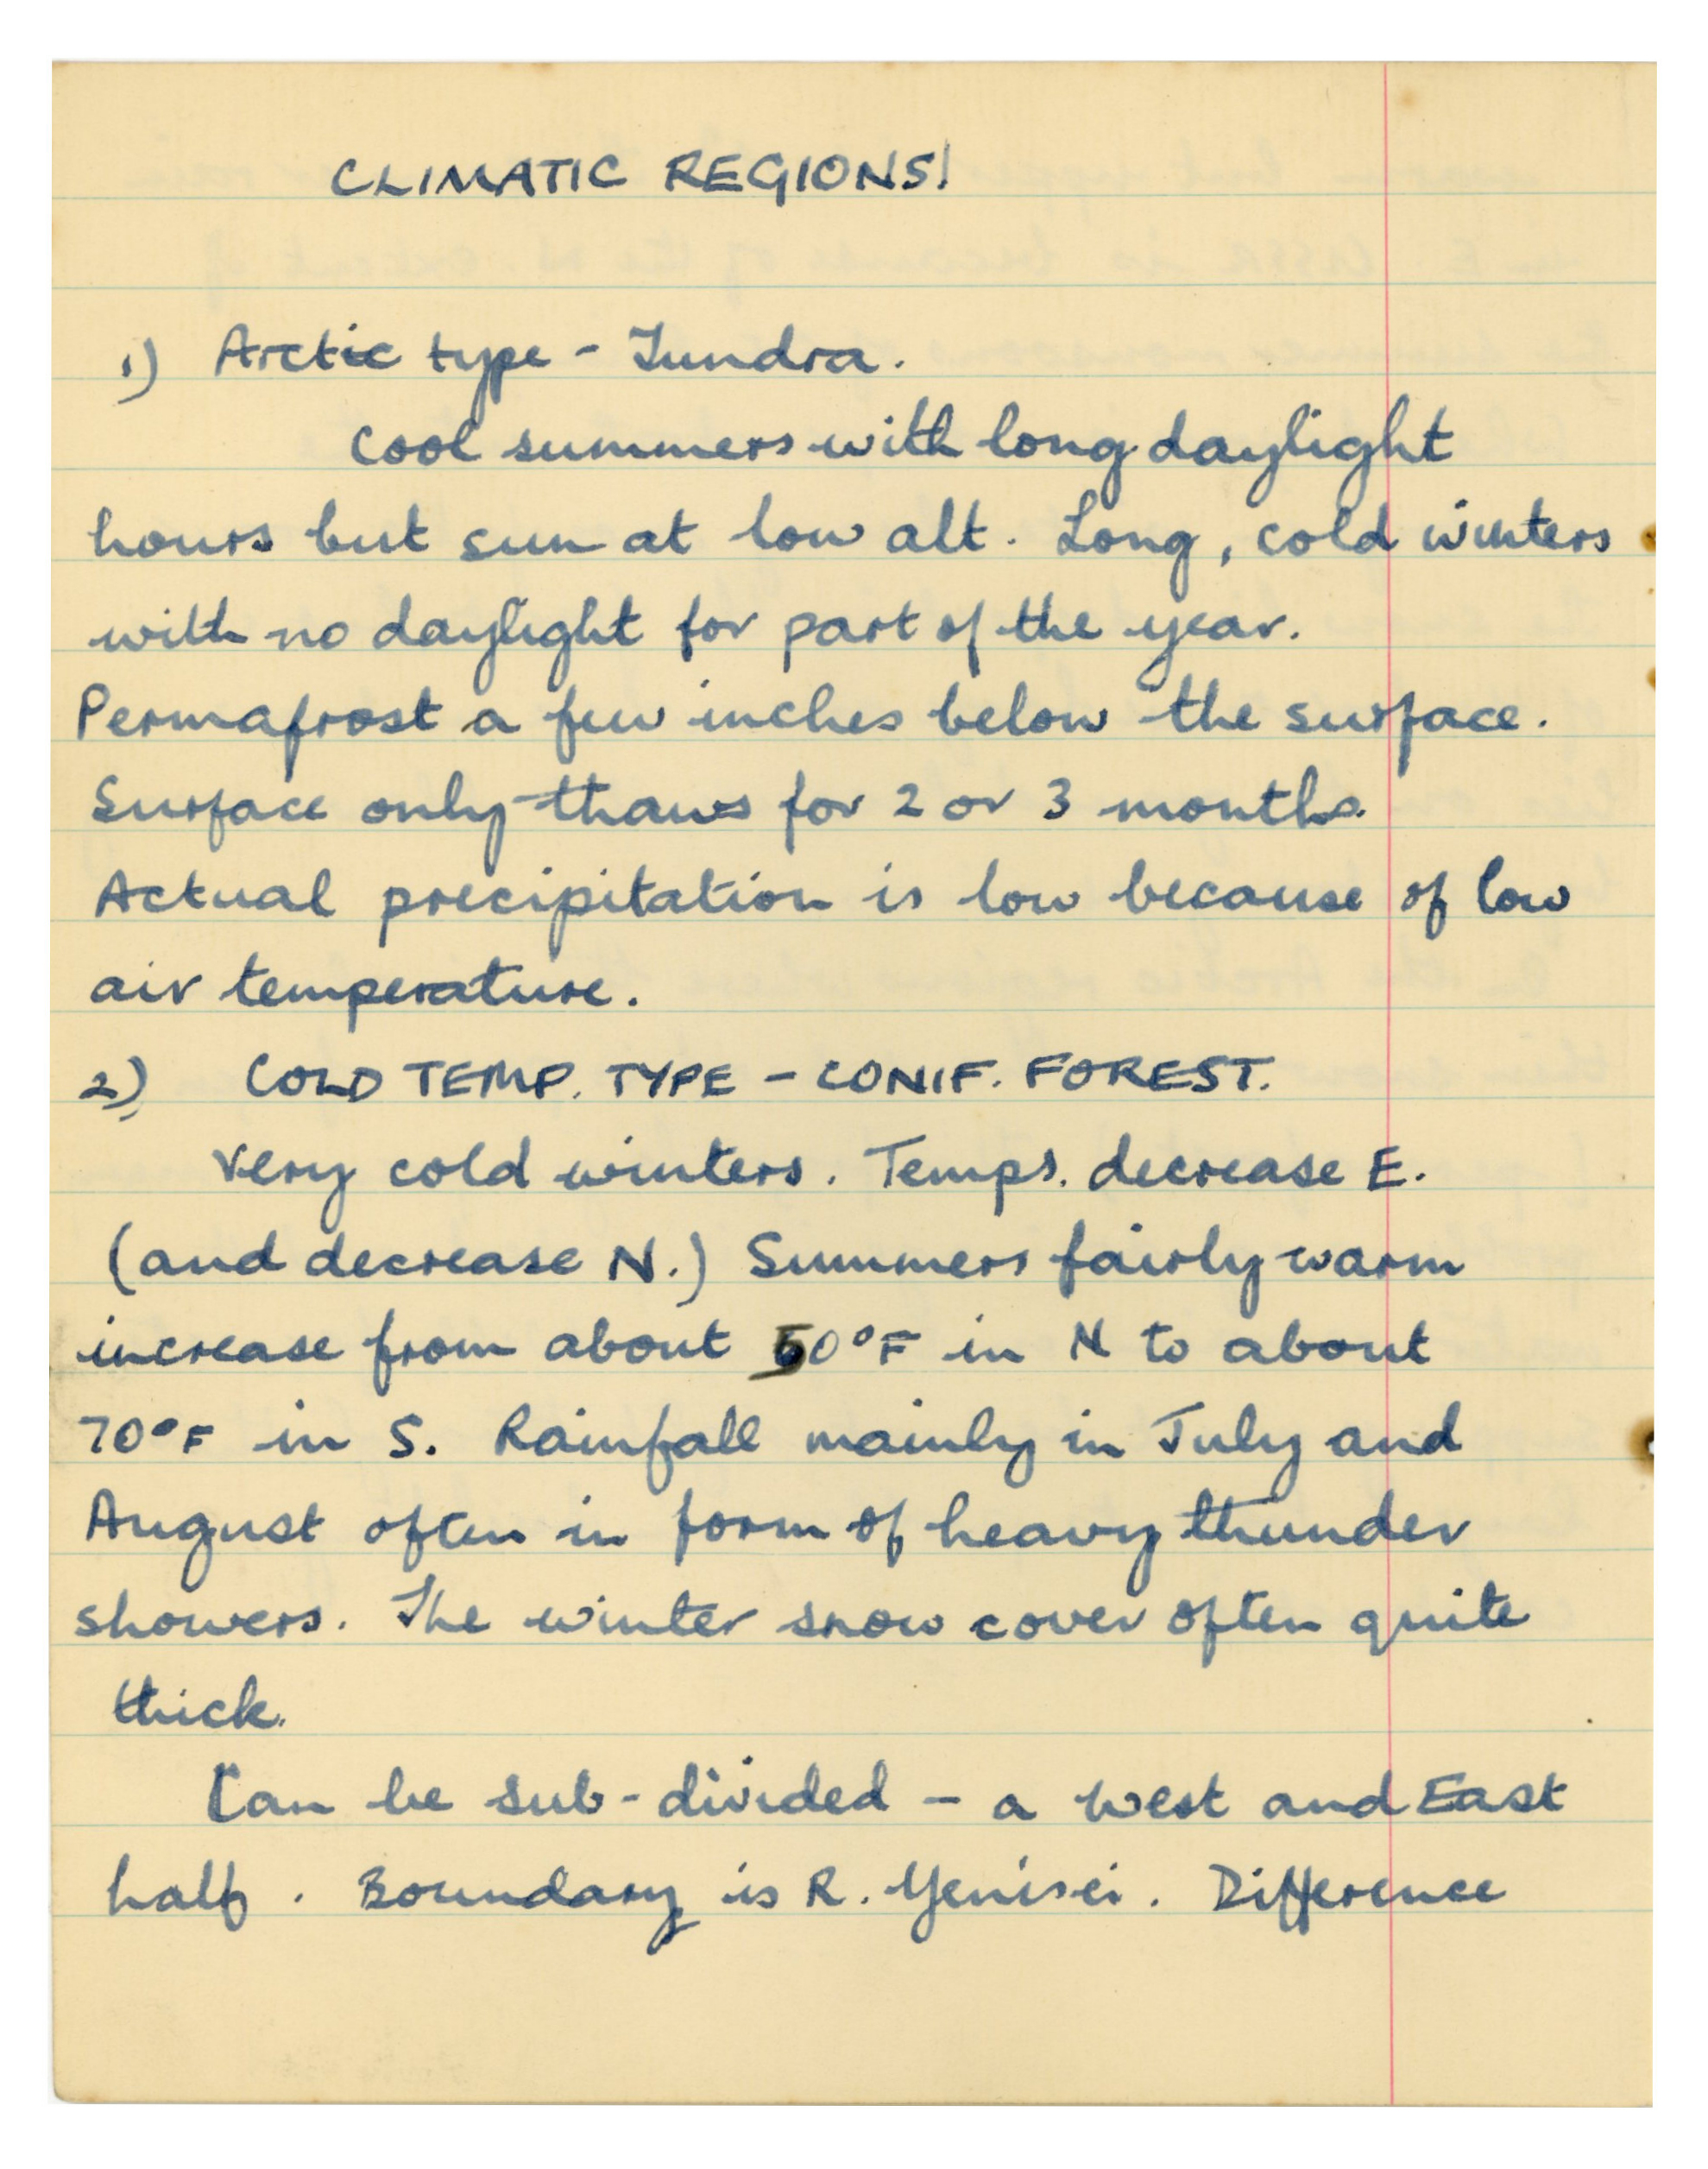 CLIMATIC REGIONS!
1) Arctic type - Tundra.
Cool summers with long daylight
hours but sun at low alt. Long, cold winters
with no daylight for part of the year.
Permafrost a few inches below the surface.
Surface only thaws for 2 or 3 months.
Actual precipitation is low because of low
air temperature.
2) COLD TEMP. TYPE - CONIF. FOREST.
Very cold winters. Temps. decrease E.
(and decrease N.) Summers fairly warm
increase from about 50°F in N to about
70°F in S. Rainfall mainly in July and
August often in form of heavy thunder
showers. The winter snow cover often quite
thick.
Can be sub-divided - a west and East
half. Boundary is R. Yenisei. Difference